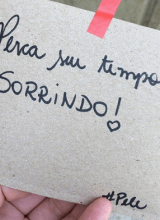 Perca seu tempo
SORRINDO!
#Pele